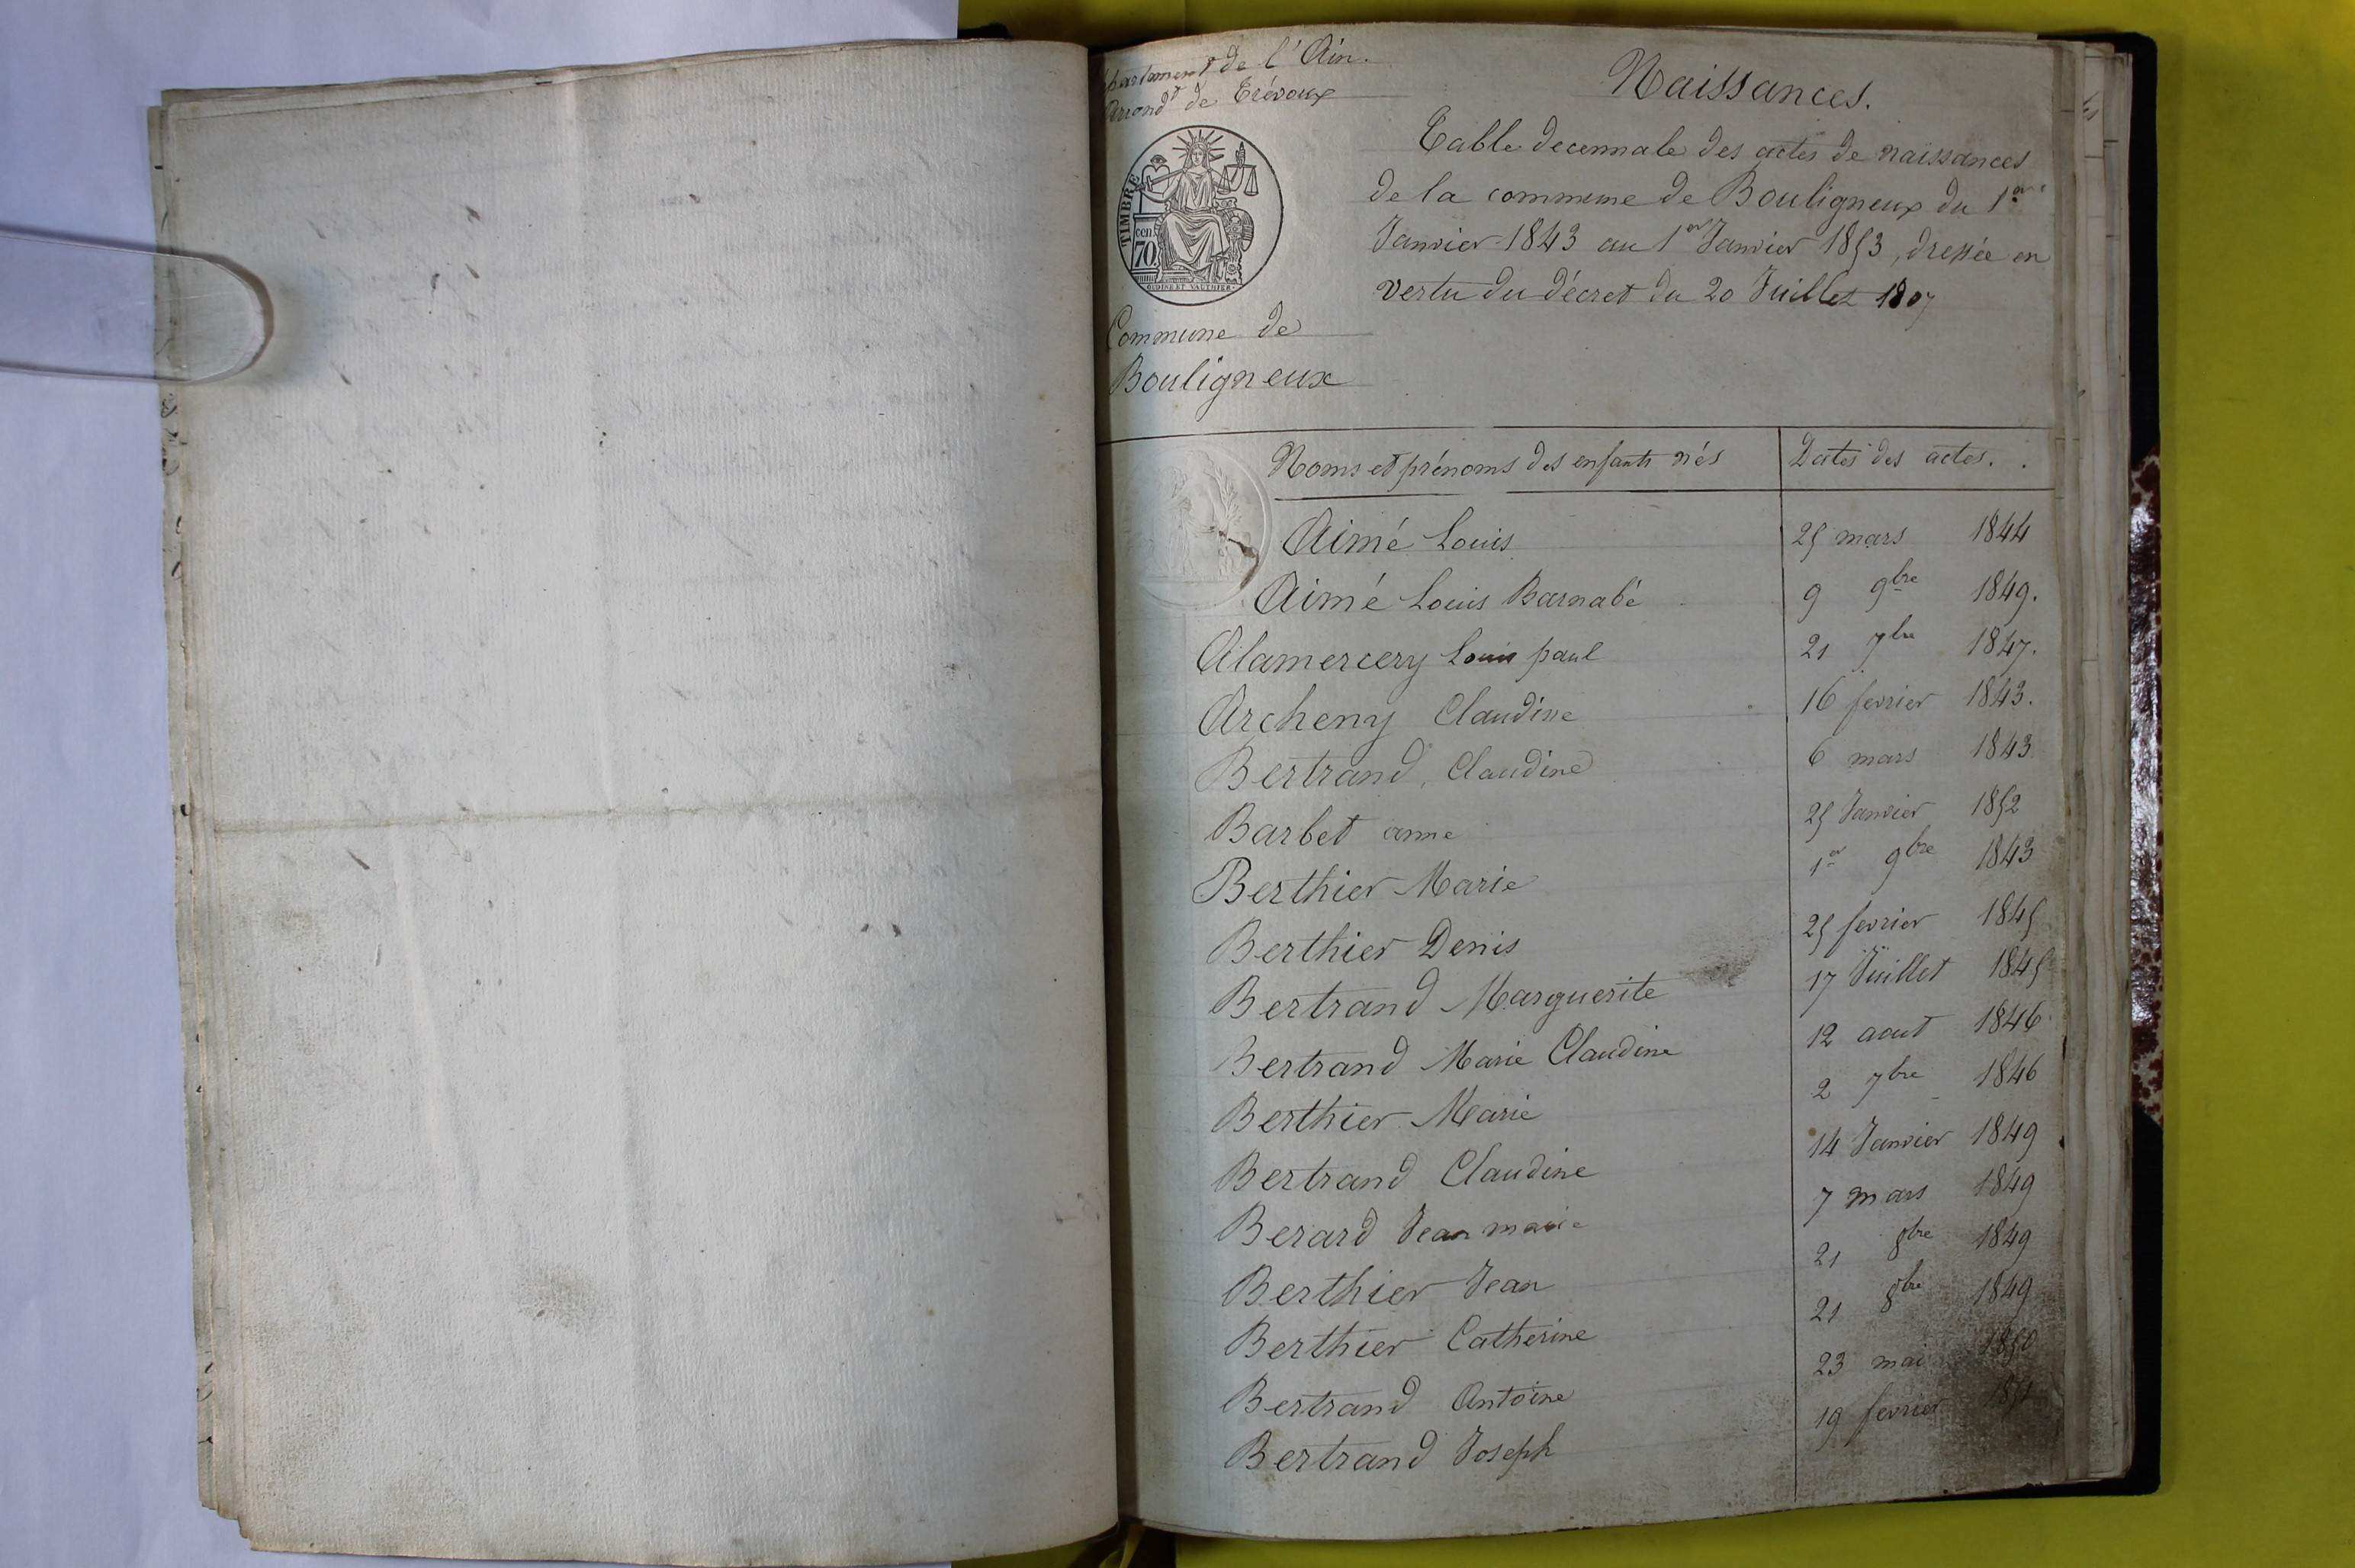 Département de l'Ain.
Arrond^t de Trévoux
TIMBRE
cen.
70
Commune de
Bouligneux
Naissances.
Table decennale des actes de naissances
de la commune de Bouligneux du 1er
Janvier 1843 au 1er Janvier 1853, dressée en
vertu du décret du 20 Juillet 1807
Noms et prénoms des enfants nés Dates des actes.
Aimé Louis 25 mars 1844
Aimé Louis Barnabé 9 9bre 1849.
Alamercery Louis paul 21 7bre 1847.
Archeny Claudine 16 fevrier 1843.
Bertrand Claudine 6 mars 1843
Barbet anne 25 Janvier 1852
Berthier Marie 1er 9bre 1843
Berthier Denis 25 fevrier 1845
Bertrand Marguerite 17 Juillet 1845
Bertrand Marie Claudine 12 aout 1846
Berthier Marie 2 7bre 1846
Bertrand Claudine 14 Janvier 1849
Berard Jean marie 7 mars 1849
Berthier Jean 21 8bre 1849
Berthier Catherine 21 8bre 1849
Bertrand Antoine 23 mai 1850
Bertrand Joseph 19 fevrier 1851